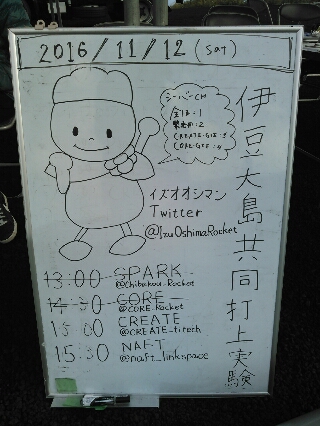 2016/11/12 (sat)
伊豆大島共同打上実験
シーバーCH
CREATE-GIE:3
CORE-GSE:4
イズオオシマン
Twitter
@IzuOshimaRocket
13:00 SPARK
@Chibakou_Rocket
14:30 CORE
@CORE_Rocket
15:00 CREATE
@CREATE_titech
15:30 NAFT
@naft_linkspace